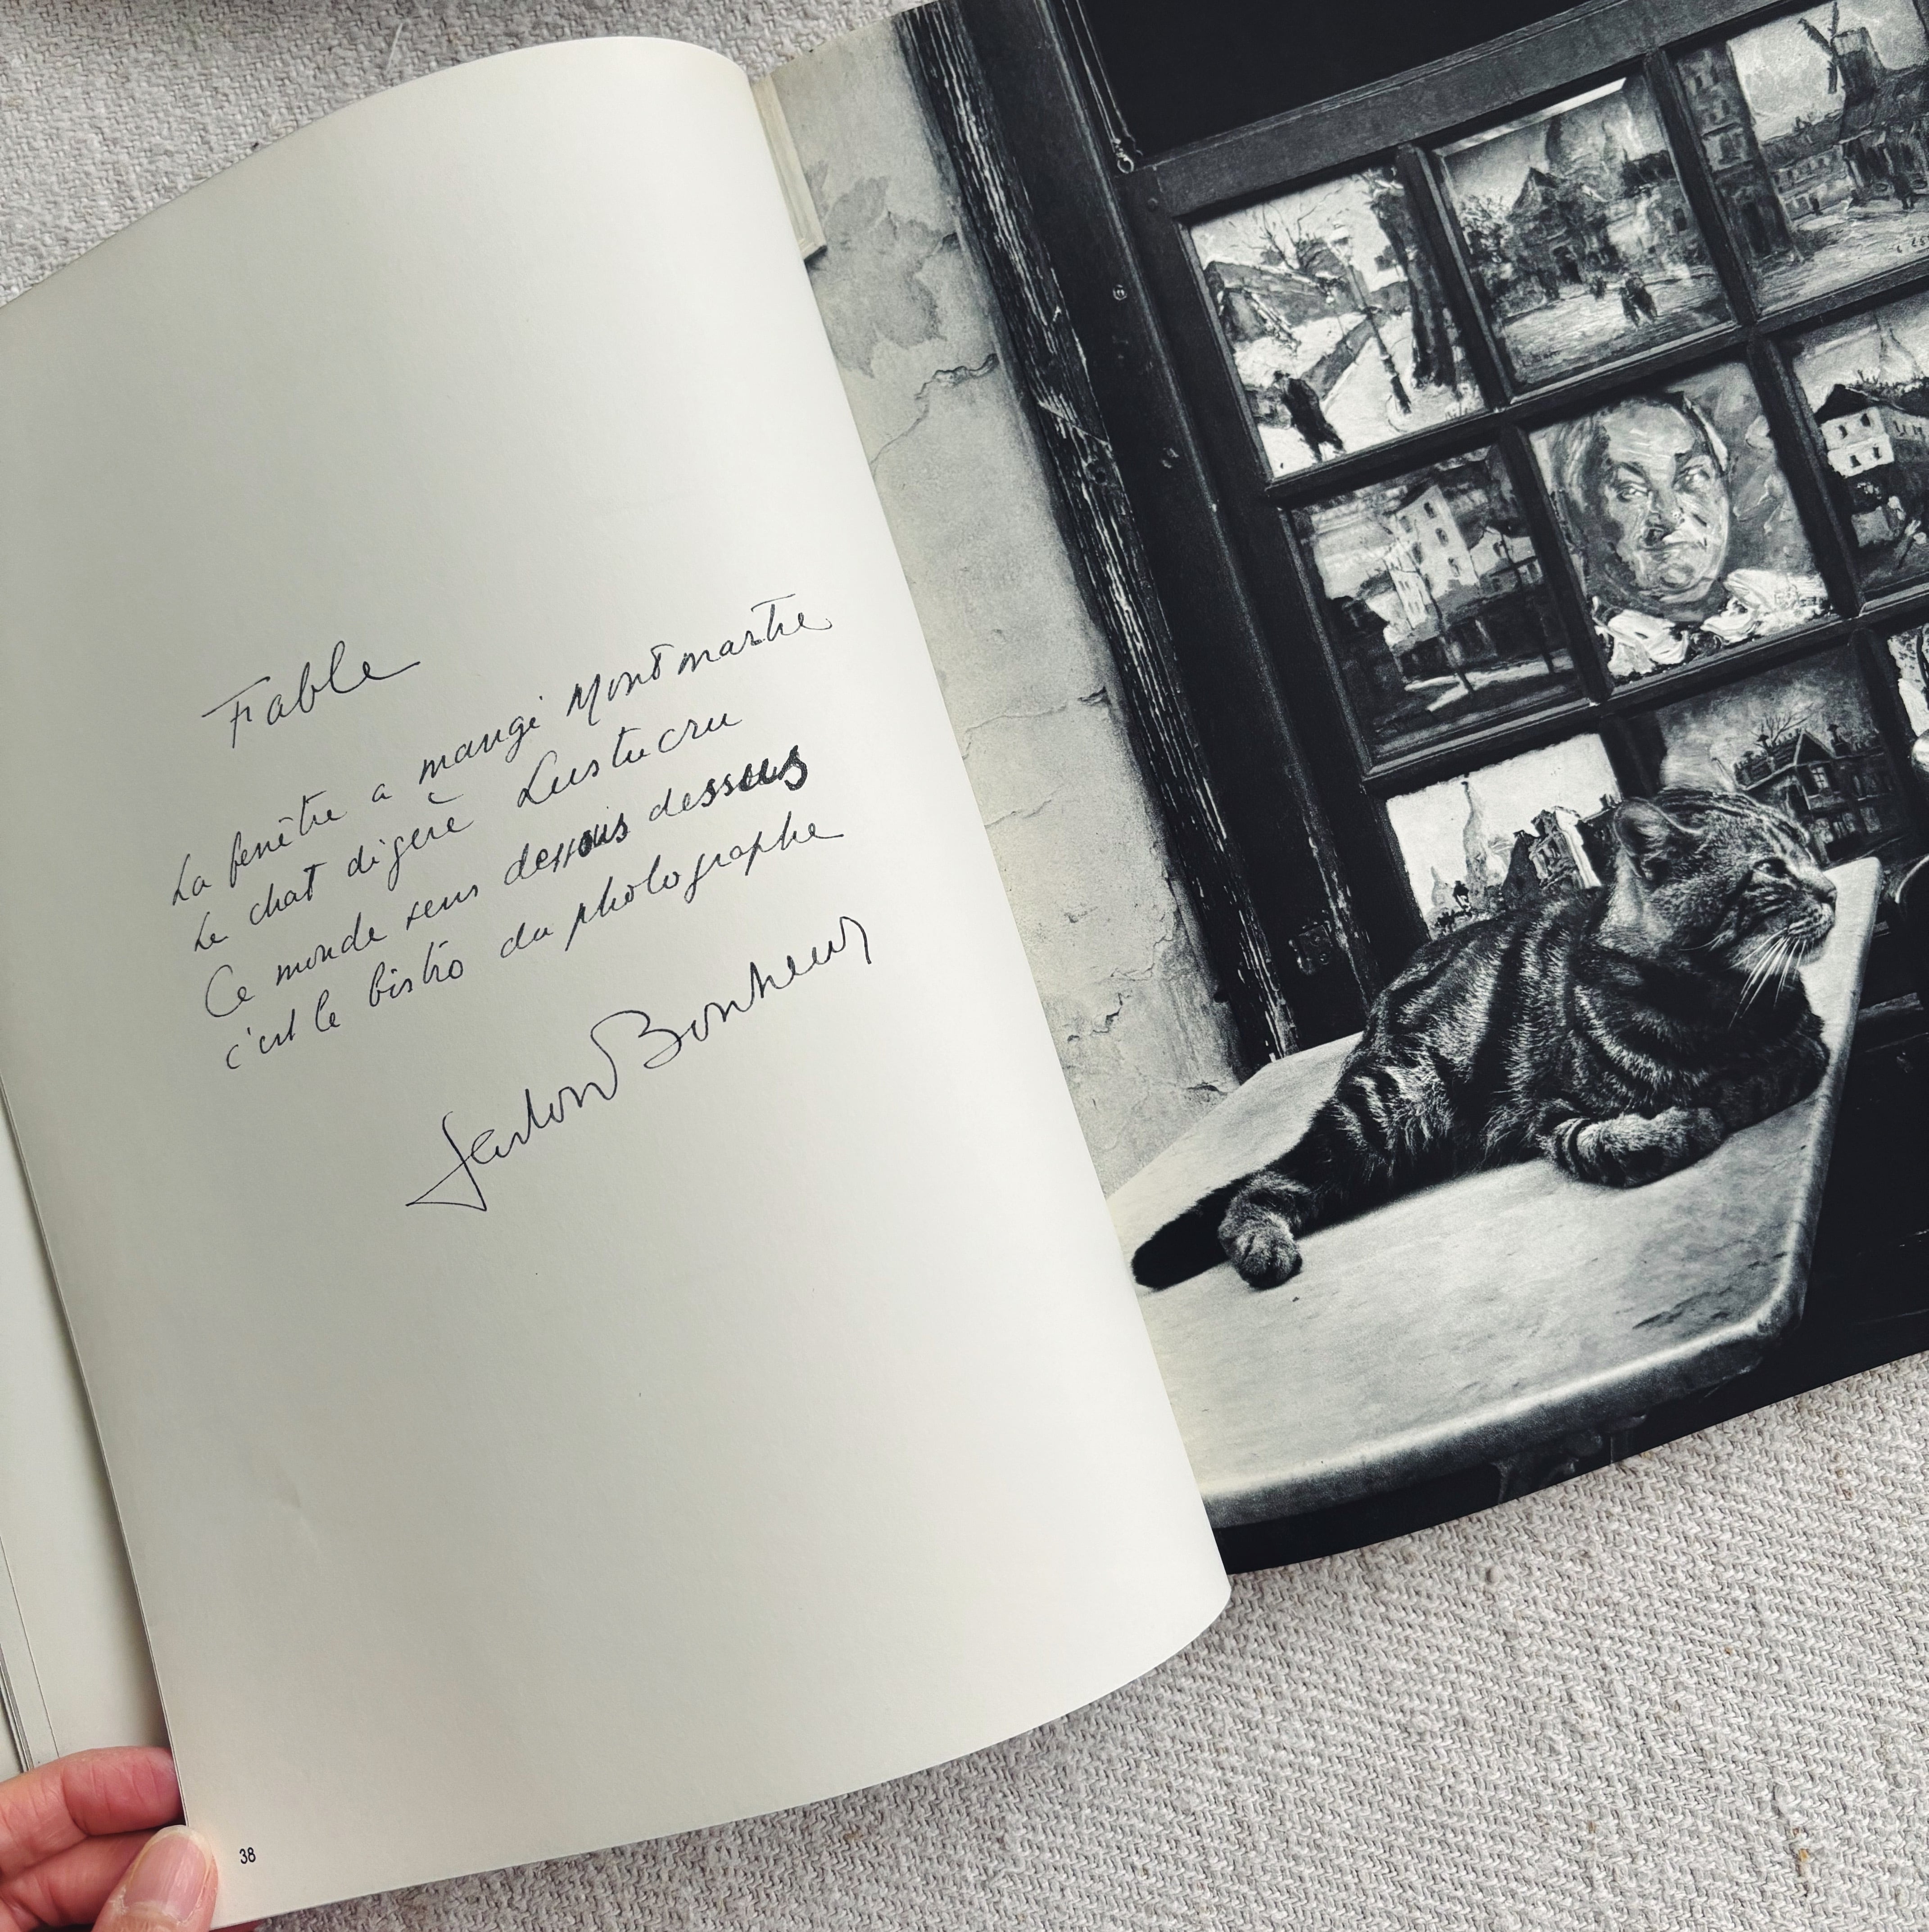 Fable
La fenêtre a mangé Montmartre
Le chat digère Lustucru
Ce monde sens dessous dessus
c'est le bistro du photographe
Gaston Bonheur
38